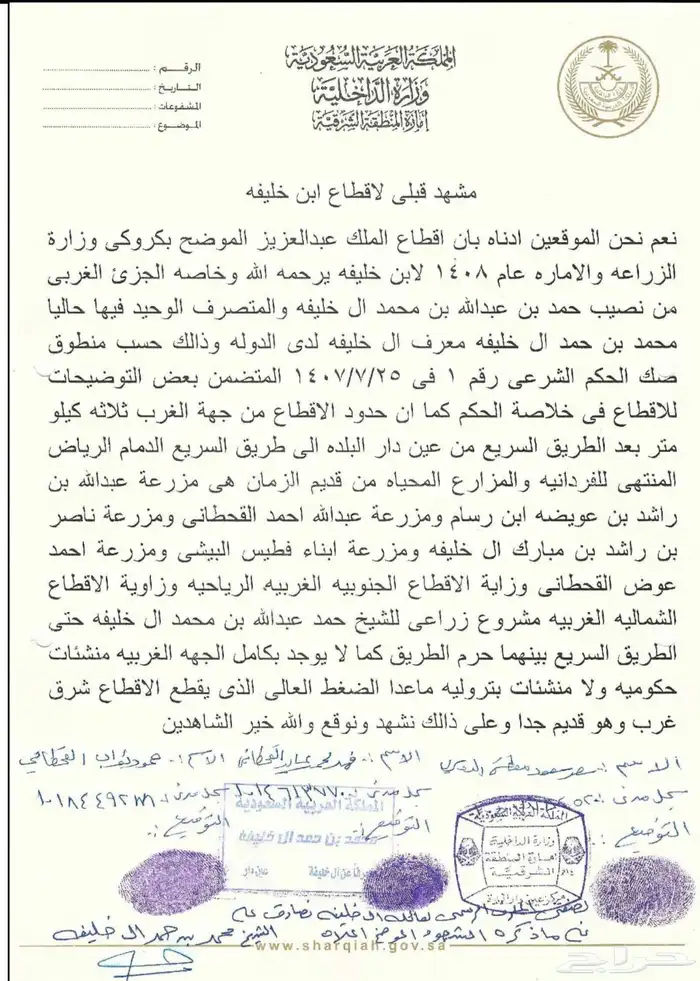 المملكة العربية السعودية
وزارة الداخلية
إمارة المنطقة الشرقية
الرقم :
التاريخ :
المشفوعات :
الموضوع :
مشهد قبلى لاقطاع ابن خليفه
نعم نحن الموقعين ادناه بان اقطاع الملك عبدالعزيز الموضح بكروكى وزارة
الزراعه والاماره عام ١٤٠٨ لابن خليفه يرحمه الله وخاصه الجزئ الغربى
من نصيب حمد بن عبدالله بن محمد ال خليفه والمتصرف الوحيد فيها حاليا
محمد بن حمد ال خليفه معرف ال خليفه لدى الدوله وذالك حسب منطوق
صك الحكم الشرعى رقم ١ فى ١٤٠٧/٧/٢٥ المتضمن بعض التوضيحات
للاقطاع فى خلاصة الحكم كما ان حدود الاقطاع من جهة الغرب ثلاثه كيلو
متر بعد الطريق السريع من عين دار البلده الى طريق السريع الدمام الرياض
المنتهى للفردانيه والمزارع المحياه من قديم الزمان هى مزرعة عبدالله بن
راشد بن عويضه ابن رسام ومزرعة عبدالله احمد القحطانى ومزرعة ناصر
بن راشد بن مبارك ال خليفه ومزرعة ابناء فطيس البيشى ومزرعة احمد
عوض القحطانى وزاية الاقطاع الجنوبيه الغربيه الرياحيه وزاوية الاقطاع
الشماليه الغربيه مشروع زراعى للشيخ حمد عبدالله بن محمد ال خليفه حتى
الطريق السريع بينهما حرم الطريق كما لا يوجد بكامل الجهه الغربيه منشئات
حكوميه ولا منشئات بتروليه ماعدا الضغط العالى الذى يقطع الاقطاع شرق
غرب وهو قديم جدا وعلى ذالك نشهد ونوقع والله خير الشاهدين
الاسم : الاسم : الاسم : القحطاني
سجل مدني : سجل مدني : سجل مدني :
التوقيع : التوقيع : التوقيع :
المملكة العربية السعودية
محمد بن حمد ال خليفه
ال خليفة عين دار
المملكة العربية السعودية
وزارة الداخلية
امارة المنطقة
الشرقية
ما ذكره الشهود الموضح اعلاه
الشيخ محمد بن حمد ال خليفه
www.sharqiah.gov.sa
حراج